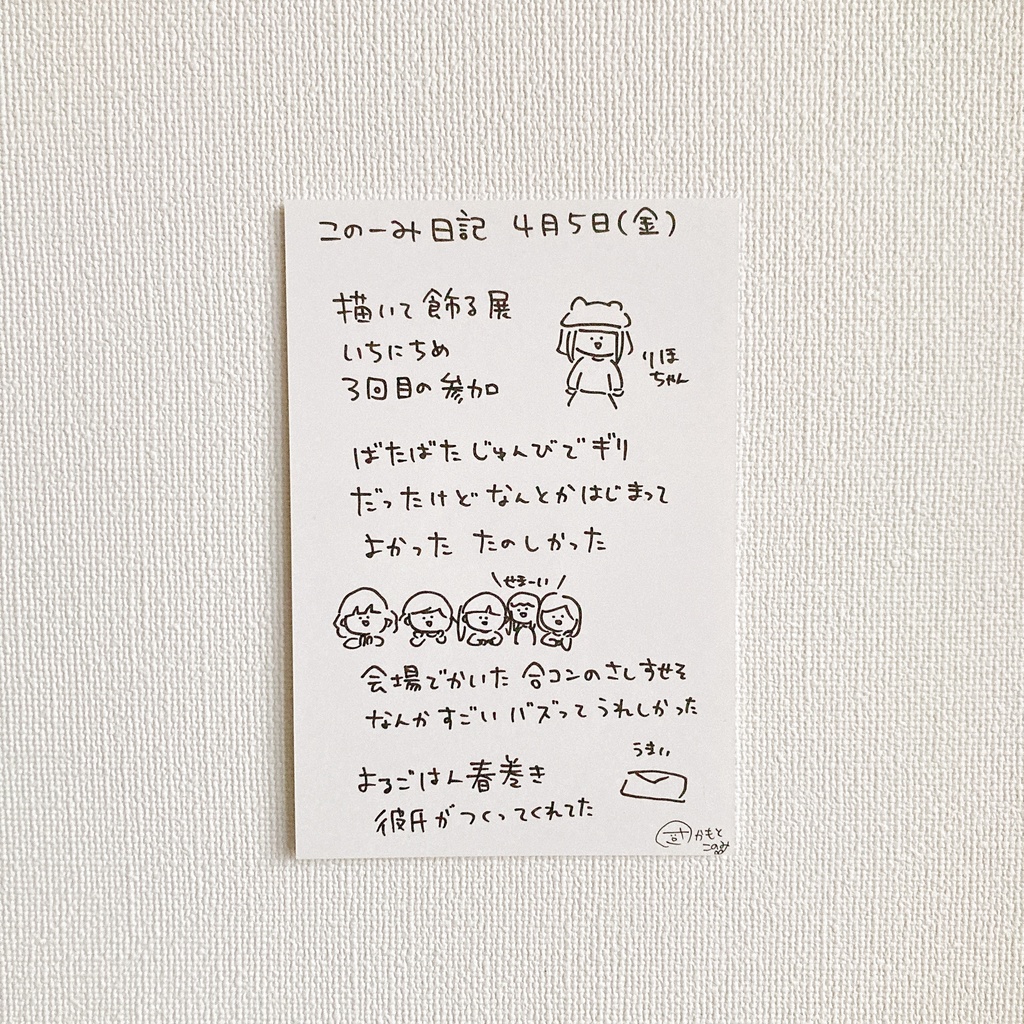 このーみ日記 4月5日(金)
描いて飾る展
いちにちめ
3回目の参加
りほ
ちゃん
ばたばたじゅんびでギリ
だったけどなんとかはじまって
よかった たのしかった
\せまーい/
会場でかいた 合コンのさしすせそ
なんかすごいバズってうれしかった
うまい
よるごはん春巻き
彼氏がつくってくれてた
かもと
このみ